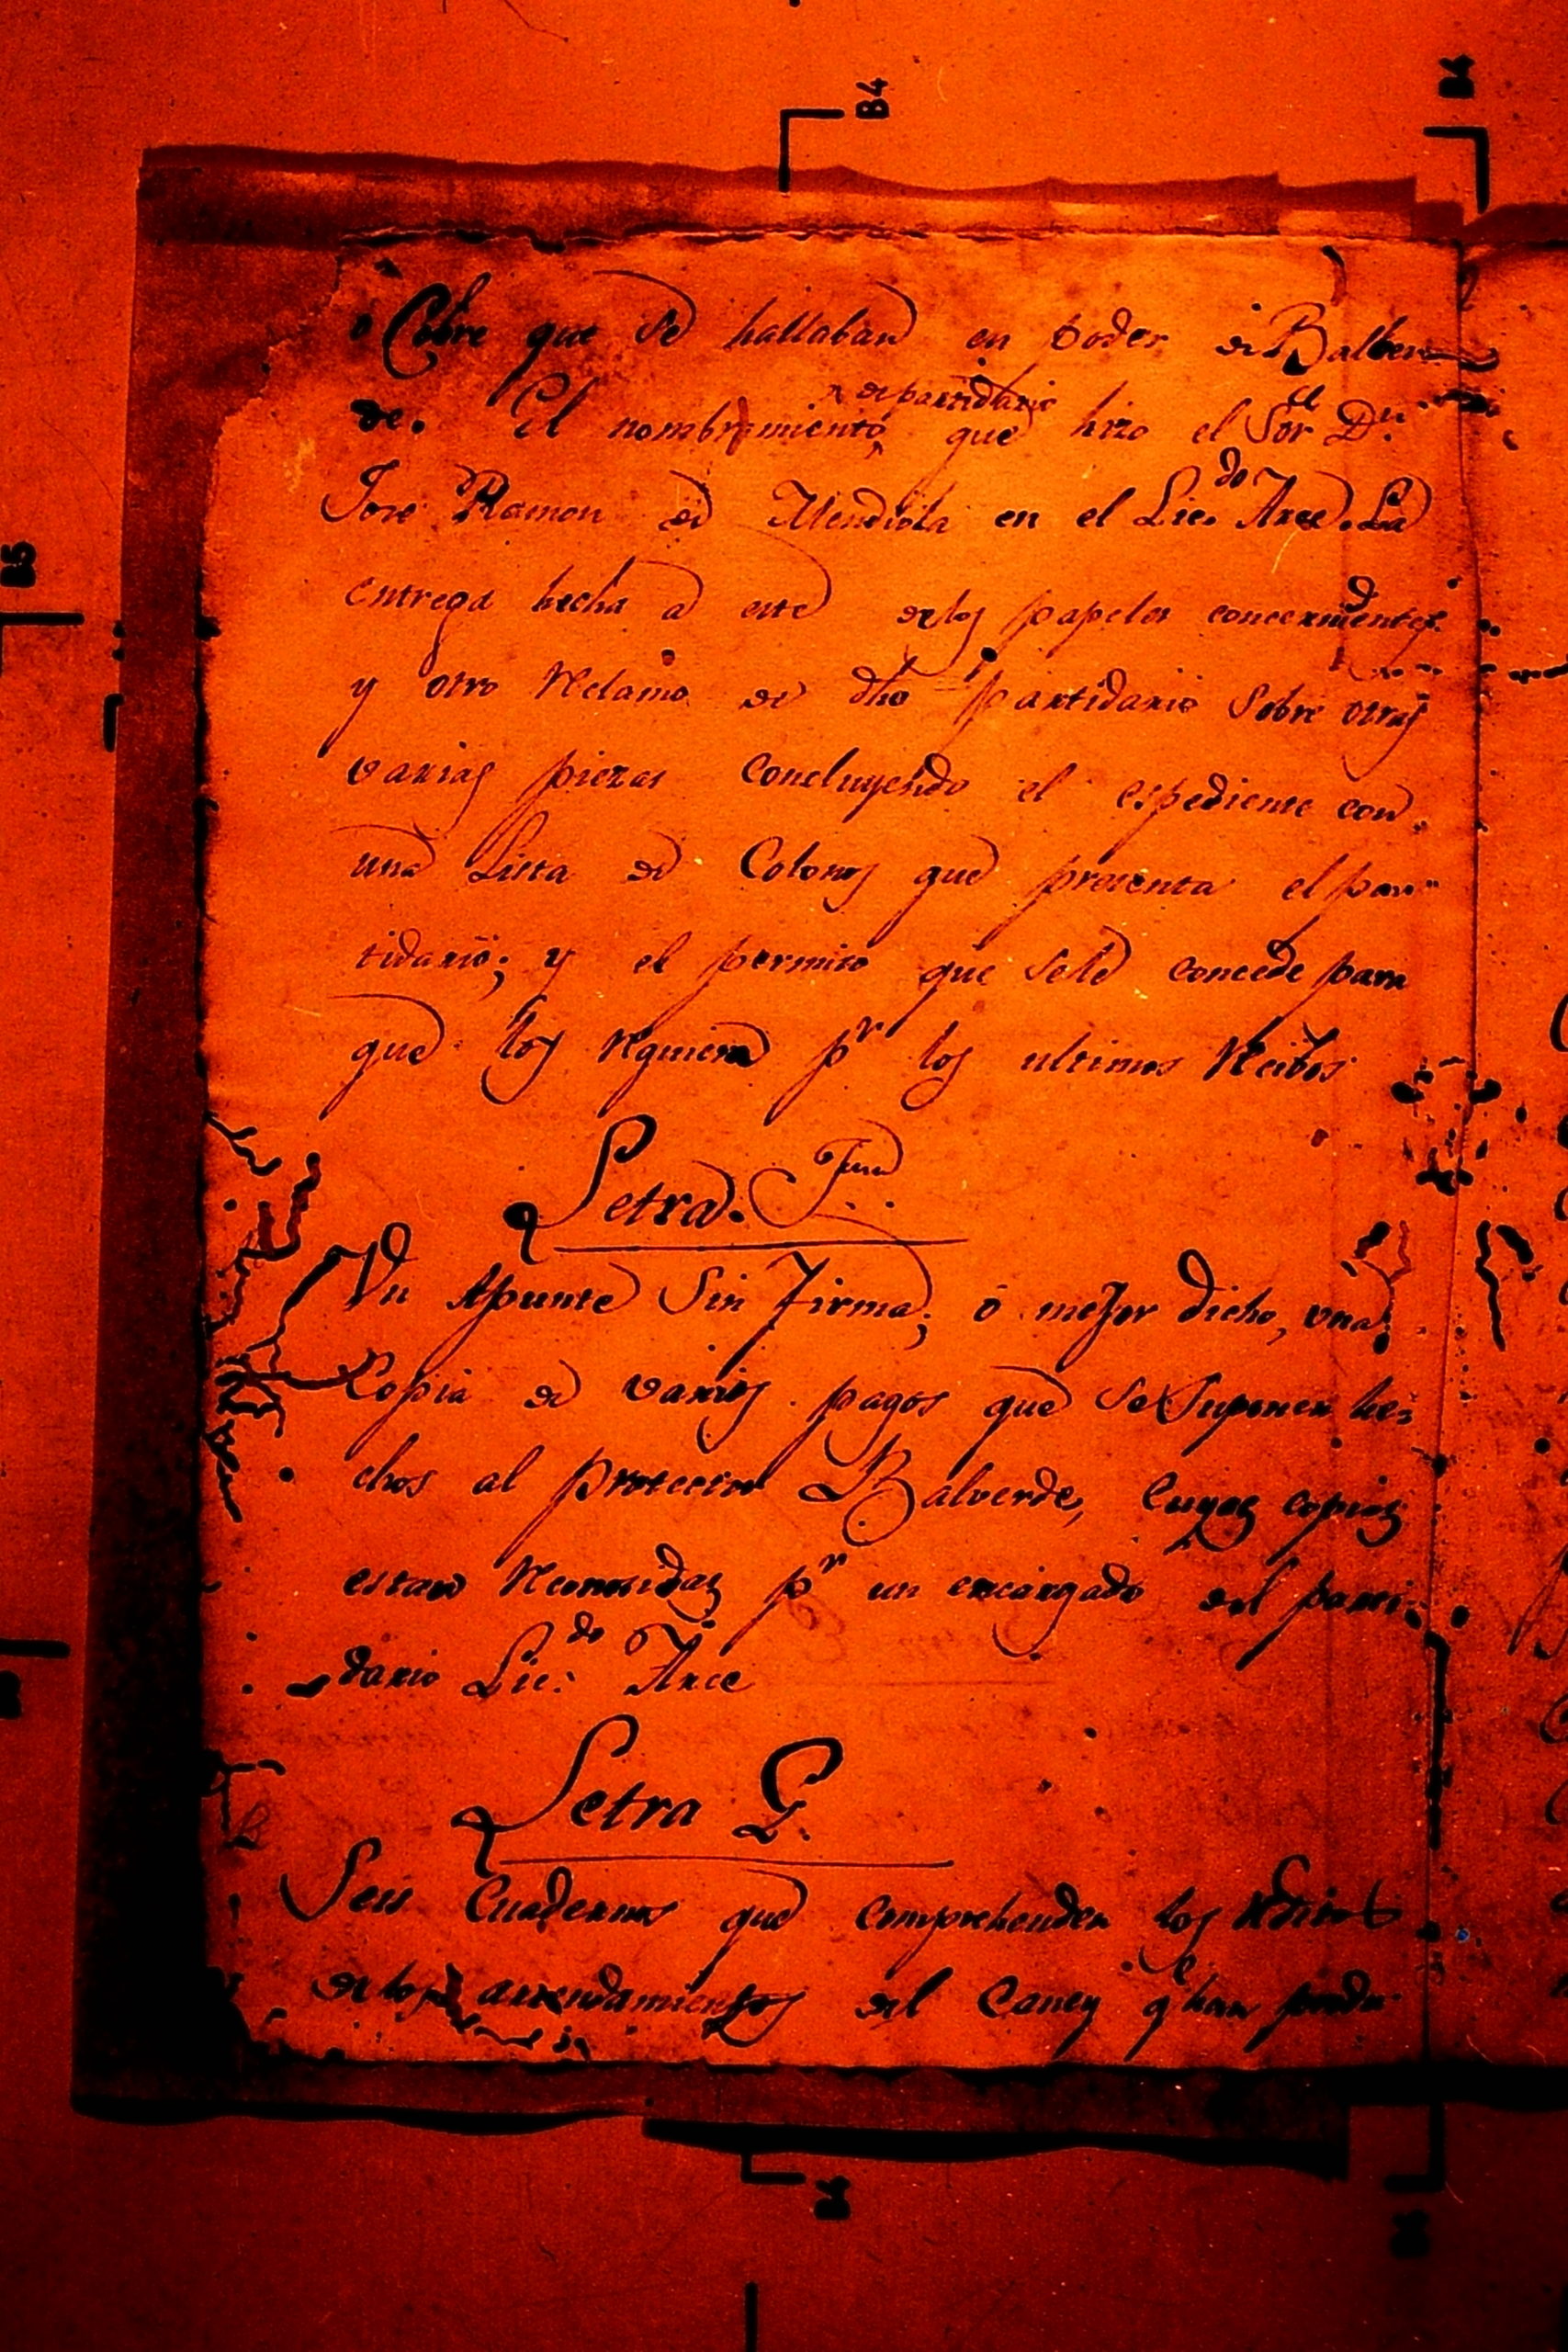 B4
B4
B5
ô Cobre que se hallaban en poder de Balver-
de. El nombramiento de partidario que hizo el Sor. Dn.
Jose Ramon de Mendiola en el Licdo. Arce. La
entrega hecha a este de los papeles concernientes
y otro Reclamo de dho partidario Sobre otras
varias piezas Concluyendo el espediente con
una Lista de Colonos que presenta el par-
tidario; y el permiso que se le concede para
que los Requiera pr los ultimos Recibos
Letra F.
Un Apunte Sin Firma; ó mejor dicho, una
Copia de varios pagos que se Suponen he-
chos al Protector Balverde, Cuyas copias
estan Reconosidas pr un encargado del parti-
dario Licdo. Arce
Letra G.
Seis Cuadernos que comprehenden los
de los arrendamientos del Caney q han produ-